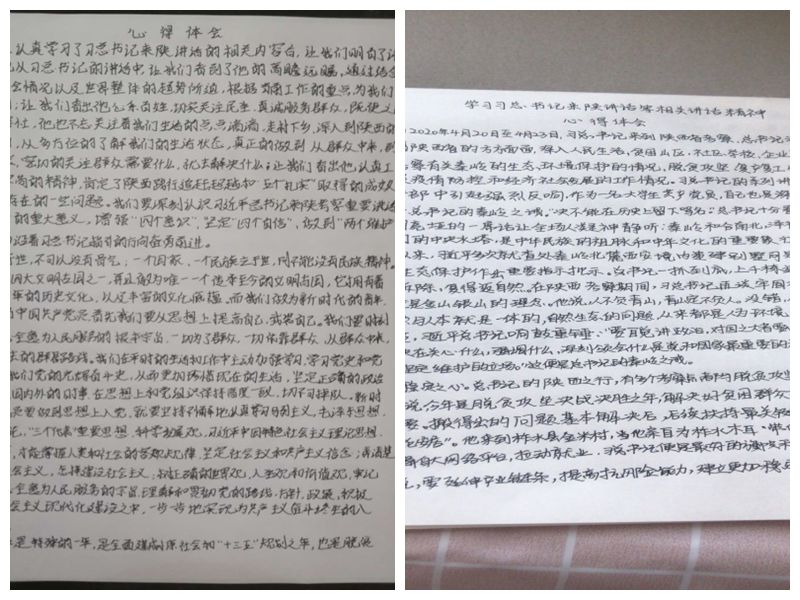 心得体会
认真学习了习总书记来陕讲话的相关内容后，让我们明白了
从习总书记的讲话中，让我们看到了他的高瞻远瞩，通过结合
会情况以及世界整体的趋势所迫，根据当前工作的重点，为我们
让我们看出他心系百姓，切实关注民生，真诚服务群众，既使
他也不忘关注着我们生活的点点滴滴，走村下乡，深入到陕西的
从多方位的了解我们的生活状态，真正的做到从群众中来，
的关注群众需要什么，就去解决什么；让我们看出他认真工
的精神，肯定了陕西践行追赶超越和"五个扎实"取得的成效
存在的一些问题。我们要深刻认识习近平总书记来陕考察重要讲话
的重大意义，增强"四个意识"，坚定"四个自信"，做到"两个维护"
沿着习总书记指引的方向奋勇前进。
不可以没有脊梁，一个国家、一个民族立于世，同样不能没有民族精神。
四大文明古国之一，再且做为唯一一个传承至今的文明古国，它拥有着
年的历史文化，以及丰富的文化底蕴，而我们做为新时代的青年，
中国共产党党员首先我们要从思想上提高自己，武装自己。我们要时刻
全意为人民服务的根本宗旨，一切为了群众，一切依靠群众，从群众中来，
去的群众路线。我们在平时的生活和工作中主动加强学习，学习党史和党
我们党的光辉奋斗史，从而更加珍惜现在的生活，坚定正确的政治
国内外的时事，在思想上和党组织保持高度一致，切不可掉队。新时
党员要做到思想上入党，就要坚持不懈地认真学习马列主义、毛泽东思想、
"三个代表"重要思想、科学发展观、习近平中国特色社会主义理论思想
才能掌握人类和社会的客观规律，坚定社会主义和共产主义信念；弄清楚
会主义、怎样建设社会主义，树立正确的世界观、人生观和价值观，牢记
全意为人民服务的宗旨，理解和贯彻党的路线、方针、政策，积极
会主义现代化建设之中，一步一步地实现为共产主义奋斗终生的人
是特殊的一年，是全面建成小康社会和"十三五"规划之年，也是脱贫
学习习总书记来陕讲话等相关讲话精神
心得体会
2020年4月20日至4月23日，习总书记来到陕西省考察，总书记
陕西省的方方面面，深入人民生活，贫困山区、社区、学校、企业
察有关秦岭的生态、环境保护的情况，脱贫攻坚、复学复工
疫情防控和经济社会发展的工作情况。习总书记的系列讲
部中引起强烈反响，作为一名大学生党员，自己也是
总书记的秦岭之诫，"决不能在历史上留下骂名"，总书记十分
的一席话让全场人读神静听：秦岭和合南北，泽
的中央水塔，是中华民族的祖脉和中华文化的重要象
来，习近平多次就秦岭北麓西安境内违建别墅问题
生态保护作出重要指示批示。总书记一抓到底，上千栋
拆除，复得返自然。在陕西考察期间，习总书记语重
是金山银山的理念。他说，人不负青山，青山定不负人。没错，
与人本就是一体的，自然生态的问题，从来都是人与环境
习近平总书记响鼓重锤："要自觉讲政治，对国之大者要
央在关心什么，强调什么，深刻领会什么是党和国家最重要的
定维护自立场"，这便是总书记的秦岭之戒。
之心。总书记的陕西之行，有多个考察点离不开脱贫攻坚
说，今年是脱贫攻坚决战决胜之年，解决好贫困群众
要搬得出的问题基本解决后，后续扶持最关键
他来到柞水县金米村，当他亲自为柞水木耳"带
大网络平台，拉动就业。
要延伸产业链条，提高抗风险能力，建立更加稳